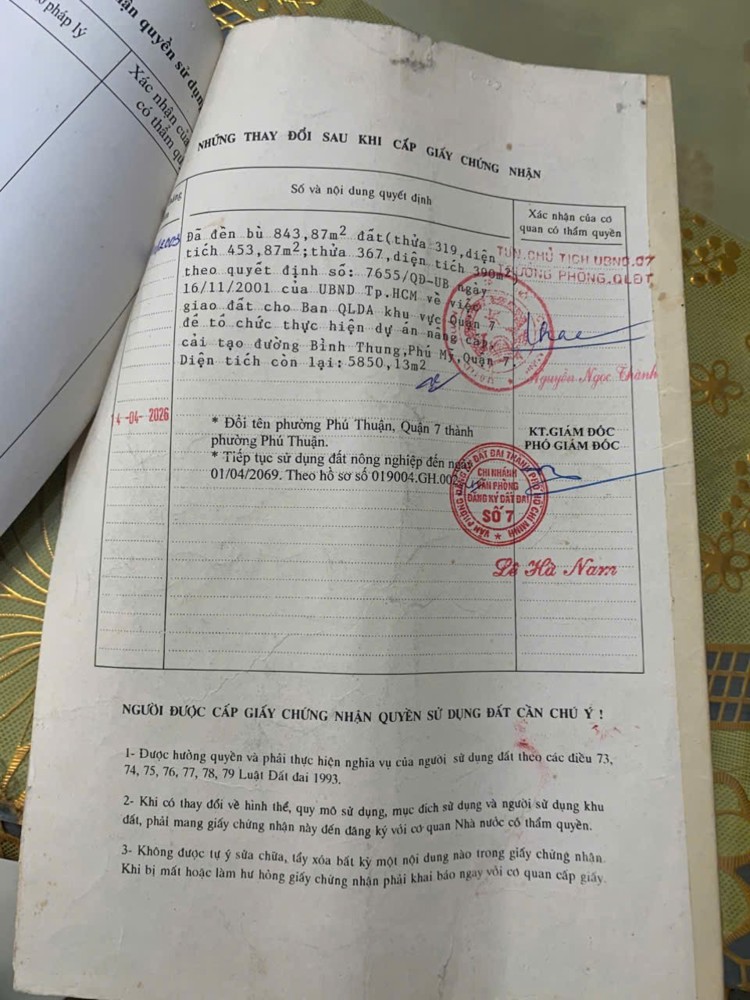 pháp lý
quyền sử dụng
Xác nhận của
có thẩm qu
NHỮNG THAY ĐỔI SAU KHI CẤP GIẤY CHỨNG NHẬN
Số và nội dung quyết định
Xác nhận của cơ
quan có thẩm quyền
Đã đền bù 843,87m2 đất(thửa 319,diện
tích 453,87m2;thửa 367,diện tích 390m2)
theo quyết định số: 7655/QĐ-UB ngày
16/11/2001 của UBND Tp.HCM về việc
giao đất cho Ban QLDA khu vực Quận 7
để tổ chức thực hiện dự án nâng cấp,
cải tạo đường Bình Thung,Phú Mỹ,Quận 7.
Diện tích còn lại:5850,13m2
TUN.CHỦ TỊCH UBND.Q7
PHÒNG.QLĐT
Nguyễn Ngọc Thành
14-04-2026
* Đổi tên phường Phú Thuận, Quận 7 thành
phường Phú Thuận.
* Tiếp tục sử dụng đất nông nghiệp đến ngày
01/04/2069. Theo hồ sơ số 019004.GH.002
KT.GIÁM ĐỐC
PHÓ GIÁM ĐỐC
VĂN PHÒNG ĐĂNG KÝ ĐẤT ĐAI THÀNH PHỐ HỒ CHÍ MINH
CHI NHÁNH
VĂN PHÒNG
ĐĂNG KÝ ĐẤT ĐAI
SỐ 7
Lê Hà Nam
NGƯỜI ĐƯỢC CẤP GIẤY CHỨNG NHẬN QUYỀN SỬ DỤNG ĐẤT CẦN CHÚ Ý !
1- Được hưởng quyền và phải thực hiện nghĩa vụ của người sử dụng đất theo các điều 73,
74, 75, 76, 77, 78, 79 Luật Đất đai 1993.
2- Khi có thay đổi về hình thể, quy mô sử dụng, mục đích sử dụng và người sử dụng khu
đất, phải mang giấy chứng nhận này đến đăng ký với cơ quan Nhà nước có thẩm quyền.
3- Không được tự ý sửa chữa, tẩy xóa bất kỳ một nội dung nào trong giấy chứng nhận.
Khi bị mất hoặc làm hư hỏng giấy chứng nhận phải khai báo ngay với cơ quan cấp giấy.